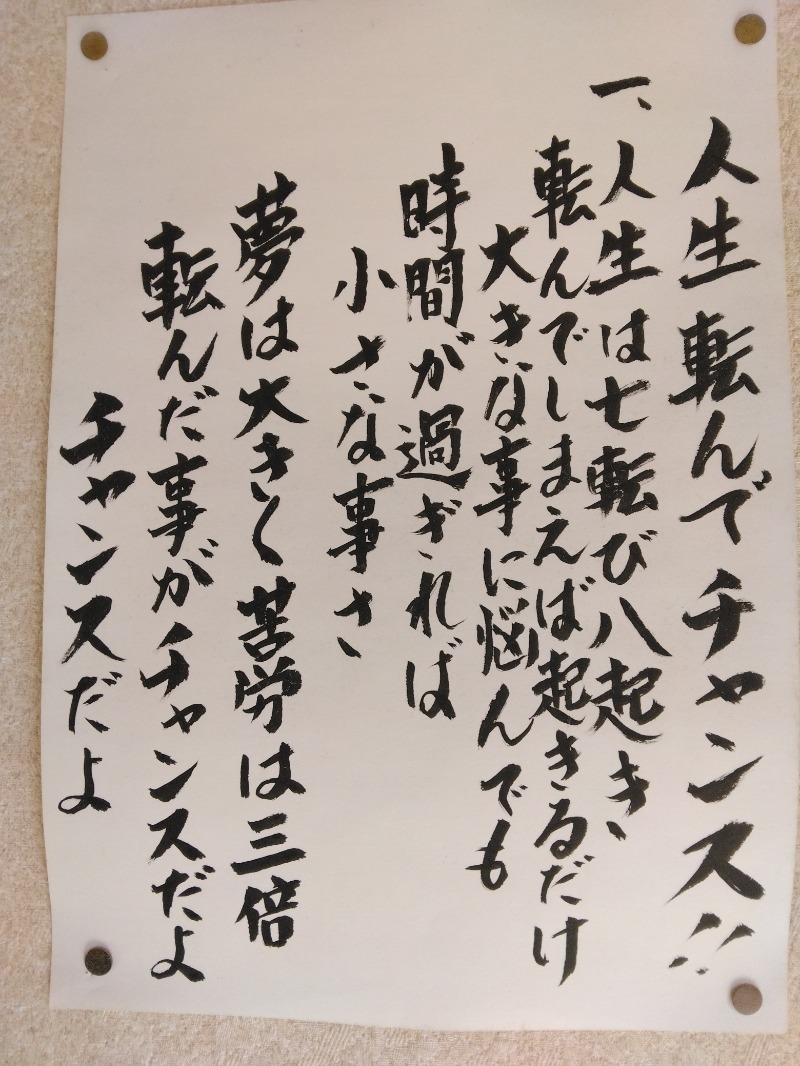 人生転んでチャンス!!
一、人生は七転び八起き
転んでしまえば起きるだけ
大きな事に悩んでも
時間が過ぎれば
小さな事さ
夢は大きく苦労は三倍
転んだ事がチャンスだよ
チャンスだよ